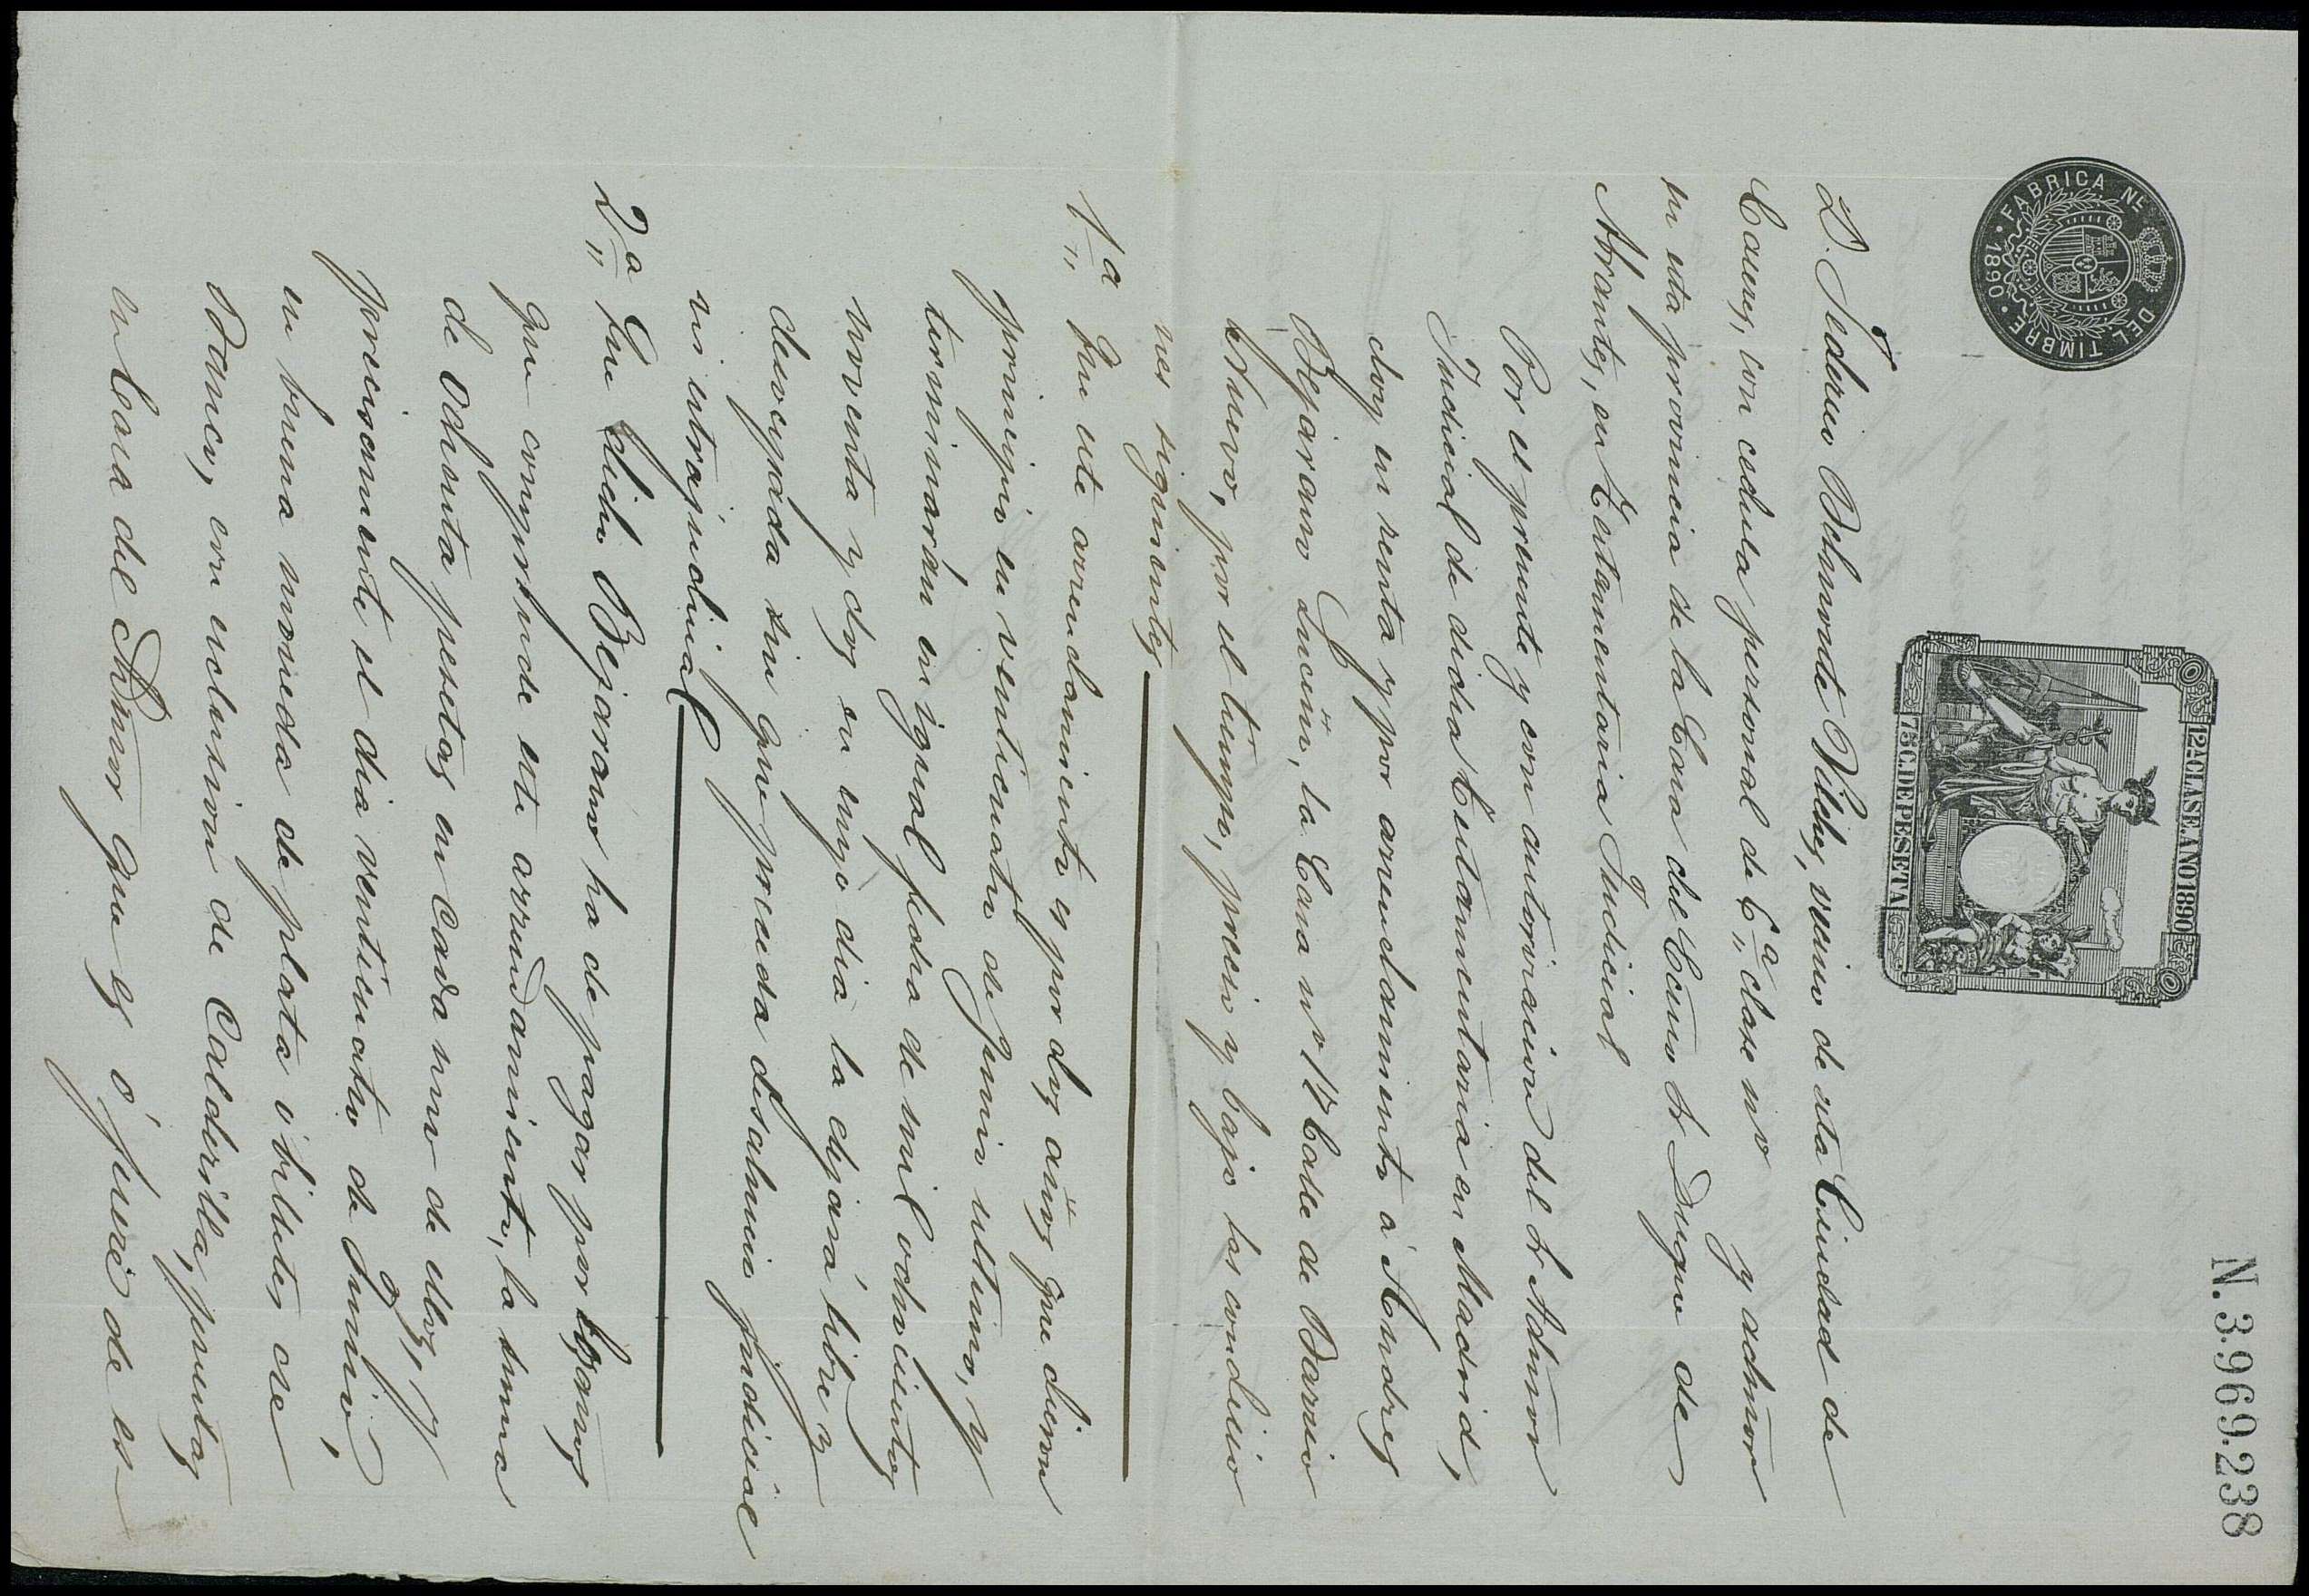 N. 3.969.238
12ª CLASE. AÑO 1890
75 C. DE PESETA
FABRICA Nˡ DEL TIMBRE • 1890 •
D. Federico Belmonte Vilches, vecino de esta Ciudad de
Caceres, con cedula personal de 6ª clase nº y admor
en esta provincia de la Casa del Ecmo Sr Duque de
Abrantes, en Testamentaria Judicial
Por el presente y con autorizacion del Sr Admor
Judicial de dicha Testamentaria en Madrid,
doy en renta y por arrendamiento á Andres
Bejarano Luceño, la Casa nº 17 Calle de Barrio
Nuevo, por el tiempo, precio y bajo las condicio
nes siguientes
1ª Que este arrendamiento es por dos años que dieron
principio en venticuatro de Junio ultimo, y
terminarán en igual fecha de mil ochocientos
noventa y dos en cuyo dia la dejará libre y
desocupada sin que preceda desahucio judicial
ni extrajudicial
2ª Que dicho Bejarano ha de pagar por los años
que comprende este arrendamiento, la suma
de ochenta pesetas en cada uno de ellos, y
precisamente el dia venticuatro de Junio,
en buena moneda de plata ó billetes del
Banco, con esclusion de Calderilla, puestas
en Casa del Admor que es ó fuere de es